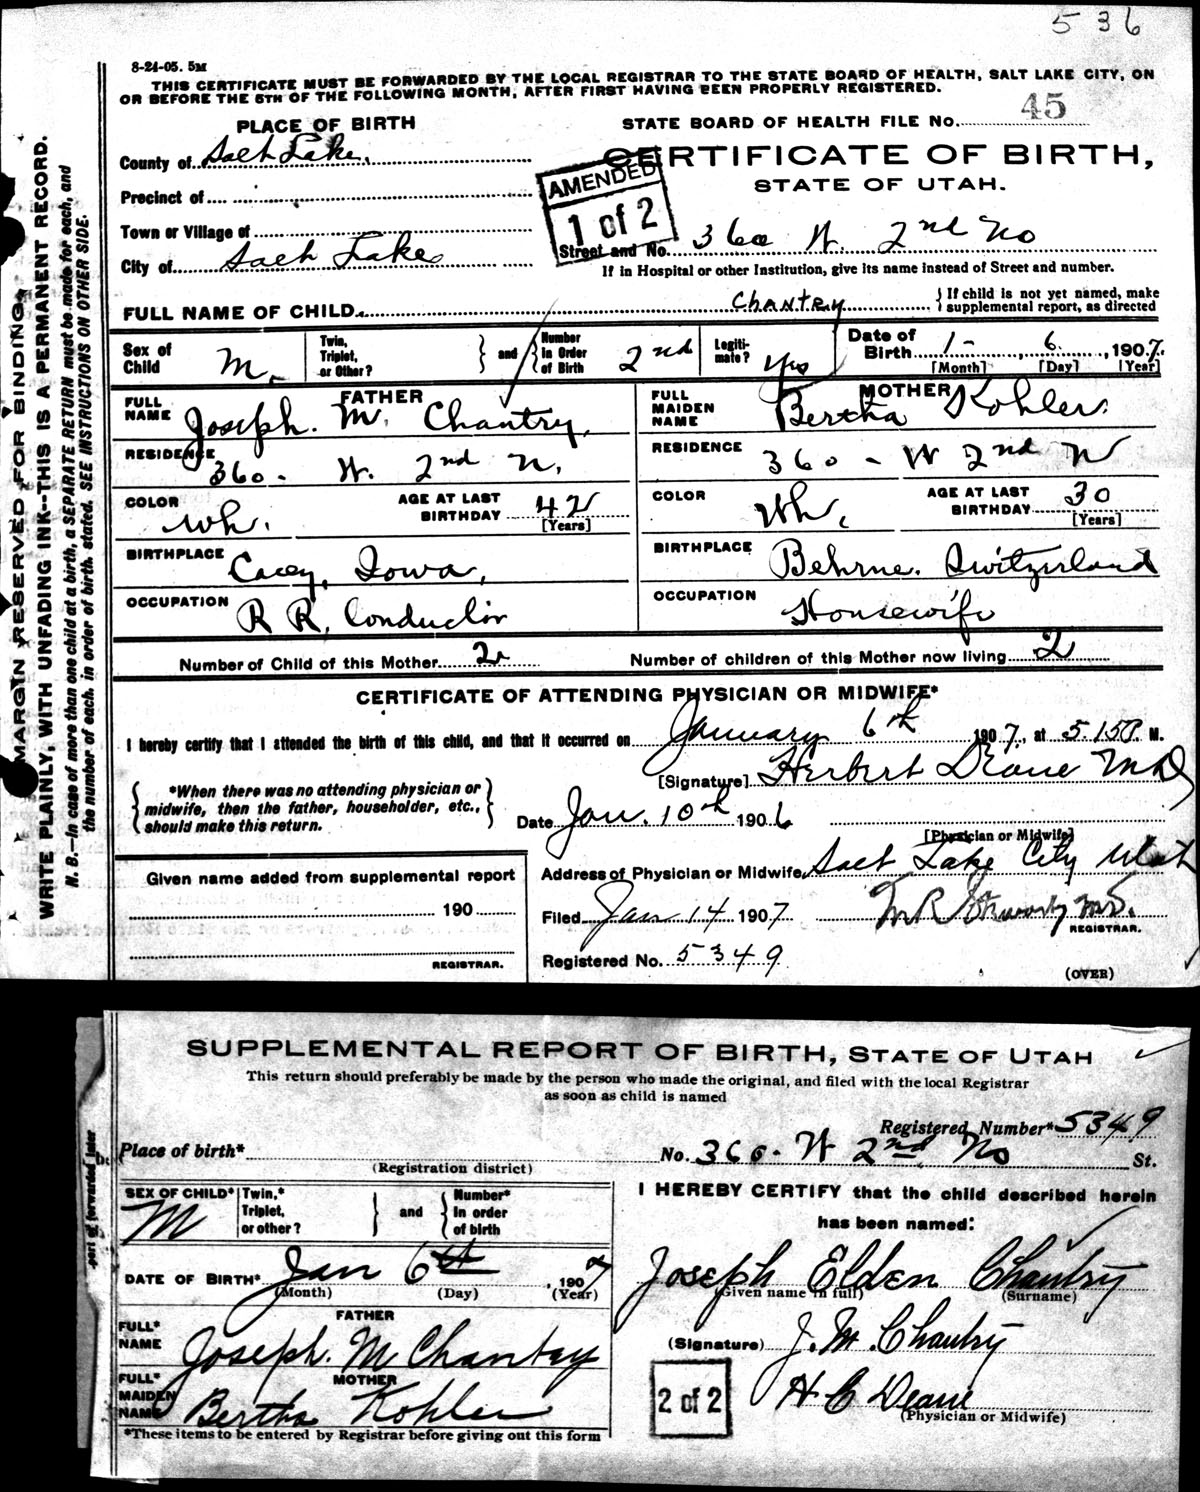 536
8-24-05. 5M
THIS CERTIFICATE MUST BE FORWARDED BY THE LOCAL REGISTRAR TO THE STATE BOARD OF HEALTH, SALT LAKE CITY, ON
OR BEFORE THE 5TH OF THE FOLLOWING MONTH, AFTER FIRST HAVING BEEN PROPERLY REGISTERED.
PLACE OF BIRTH
STATE BOARD OF HEALTH FILE No. 45
County of Salt Lake.
CERTIFICATE OF BIRTH,
STATE OF UTAH.
AMENDED
1 of 2
Precinct of
Town or Village of
Street and No. 360 W. 2nd No
City of Salt Lake
If in Hospital or other Institution, give its name instead of Street and number.
FULL NAME OF CHILD Chantry { If child is not yet named, make
supplemental report, as directed
Sex of
Child M.
Twin,
Triplet,
or Other? } and { Number
in Order
of Birth 2nd
Legiti-
mate? Yes
Date of
Birth 1- , 6 , 1907.
[Month] [Day] [Year]
FATHER
FULL
NAME Joseph. M. Chantry,
MOTHER
FULL
MAIDEN
NAME Bertha Kohler.
RESIDENCE 360- W. 2nd N.
RESIDENCE 360 - W 2nd N
COLOR Wh.
AGE AT LAST
BIRTHDAY 42
[Years]
COLOR Wh,
AGE AT LAST
BIRTHDAY 30
[Years]
BIRTHPLACE Cacey, Iowa,
BIRTHPLACE Behrne. Switzerland
OCCUPATION R R, Conductor
OCCUPATION Housewife
Number of Child of this Mother 2
Number of children of this Mother now living 2
CERTIFICATE OF ATTENDING PHYSICIAN OR MIDWIFE*
I hereby certify that I attended the birth of this child, and that it occurred on January 6th 1907, at 5.15 P. M.
[Signature] Herbert Deane M D
{ *When there was no attending physician or
midwife, then the father, householder, etc.,
should make this return. }
Date Jan. 10th 1906
[Physician or Midwife]
Address of Physician or Midwife, Salt Lake City Utah
Given name added from supplemental report
190
REGISTRAR.
Filed Jan 14 1907
REGISTRAR.
Registered No. 5349
(OVER)
MARGIN RESERVED FOR BINDING.
WRITE PLAINLY, WITH UNFADING INK--THIS IS A PERMANENT RECORD.
N. B.—In case of more than one child at a birth, a SEPARATE RETURN must be made for each, and
the number of each, in order of birth, stated. SEE INSTRUCTIONS ON OTHER SIDE.
SUPPLEMENTAL REPORT OF BIRTH, STATE OF UTAH
This return should preferably be made by the person who made the original, and filed with the local Registrar
as soon as child is named
Registered Number* 5349
Place of birth* No. 360- W 2nd No St.
(Registration district)
SEX OF CHILD* M
Twin,*
Triplet,
or other? } and { Number*
in order
of birth
DATE OF BIRTH* Jan 6th, 1907
(Month) (Day) (Year)
FATHER
FULL*
NAME Joseph. M Chantry
MOTHER
FULL*
MAIDEN
NAME Bertha Kohler
*These items to be entered by Registrar before giving out this form
I HEREBY CERTIFY that the child described herein
has been named:
Joseph Elden Chantry
(Given name in full) (Surname)
(Signature) J. M. Chantry
H C Deane
(Physician or Midwife)
2 of 2